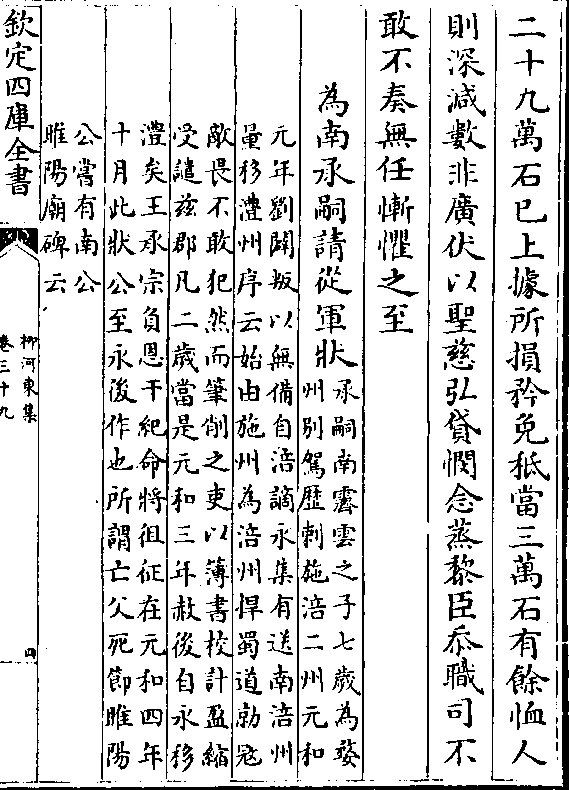 二十九萬石已上據所損矜免秪當三萬石有餘恤人
則深減數非廣伏以聖慈弘貸憫念蒸黎臣忝職司不
敢不奏無任慚懼之至
為南承嗣請從軍狀
承嗣南霽雲之子七歲為婺
州别駕歷刺施涪二州元和
元年劉闢叛以無備自涪謫永集有送南涪州
量移澧州序云始由施州為涪州悍蜀道勍冦
敵畏不敢犯然而筆削之吏以簿書校計盈縮
受譴兹郡凡二歲當是元和三年赦後自永移
澧矣王承宗負恩干紀命將徂征在元和四年
十月此狀公至永後作也所謂亡父死節睢陽
公嘗有南公
睢陽廟碑云
欽定四庫全書
柳河東集
卷三十九
四